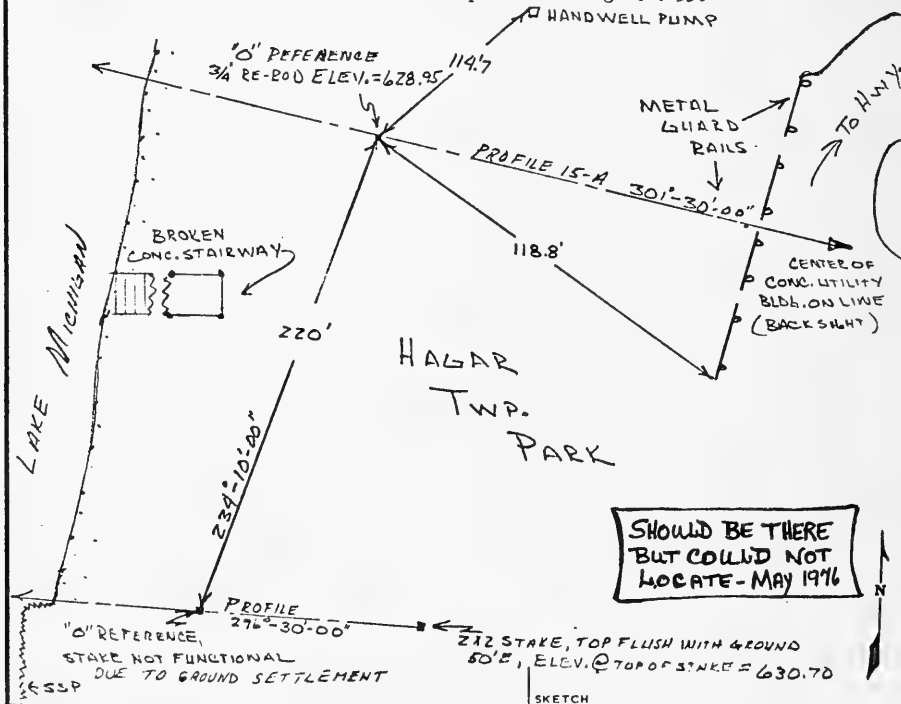 HANDWELL PUMP
"O" REFERENCE
3/4 RE-ROD ELEV.=628.95
114.7
METAL
GUARD
RAILS
TO HWY.
PROFILE 15-A 301°-30'-00"
BROKEN
CONC. STAIRWAY
118.8'
CENTER OF
CONC. UTILITY
BLDG. ON LINE
(BACKSIGHT)
LAKE MICHIGAN
220'
HAGAR
TWP.
PARK
234°-10'-00"
SHOULD BE THERE
BUT COULD NOT
LOCATE - MAY 1976
N
PROFILE
296°-30'-00"
"O" REFERENCE,
STAKE NOT FUNCTIONAL
DUE TO GROUND SETTLEMENT
2X2 STAKE, TOP FLUSH WITH GROUND
50'E, ELEV. @ TOP OF STAKE = 630.70
SSP
SKETCH